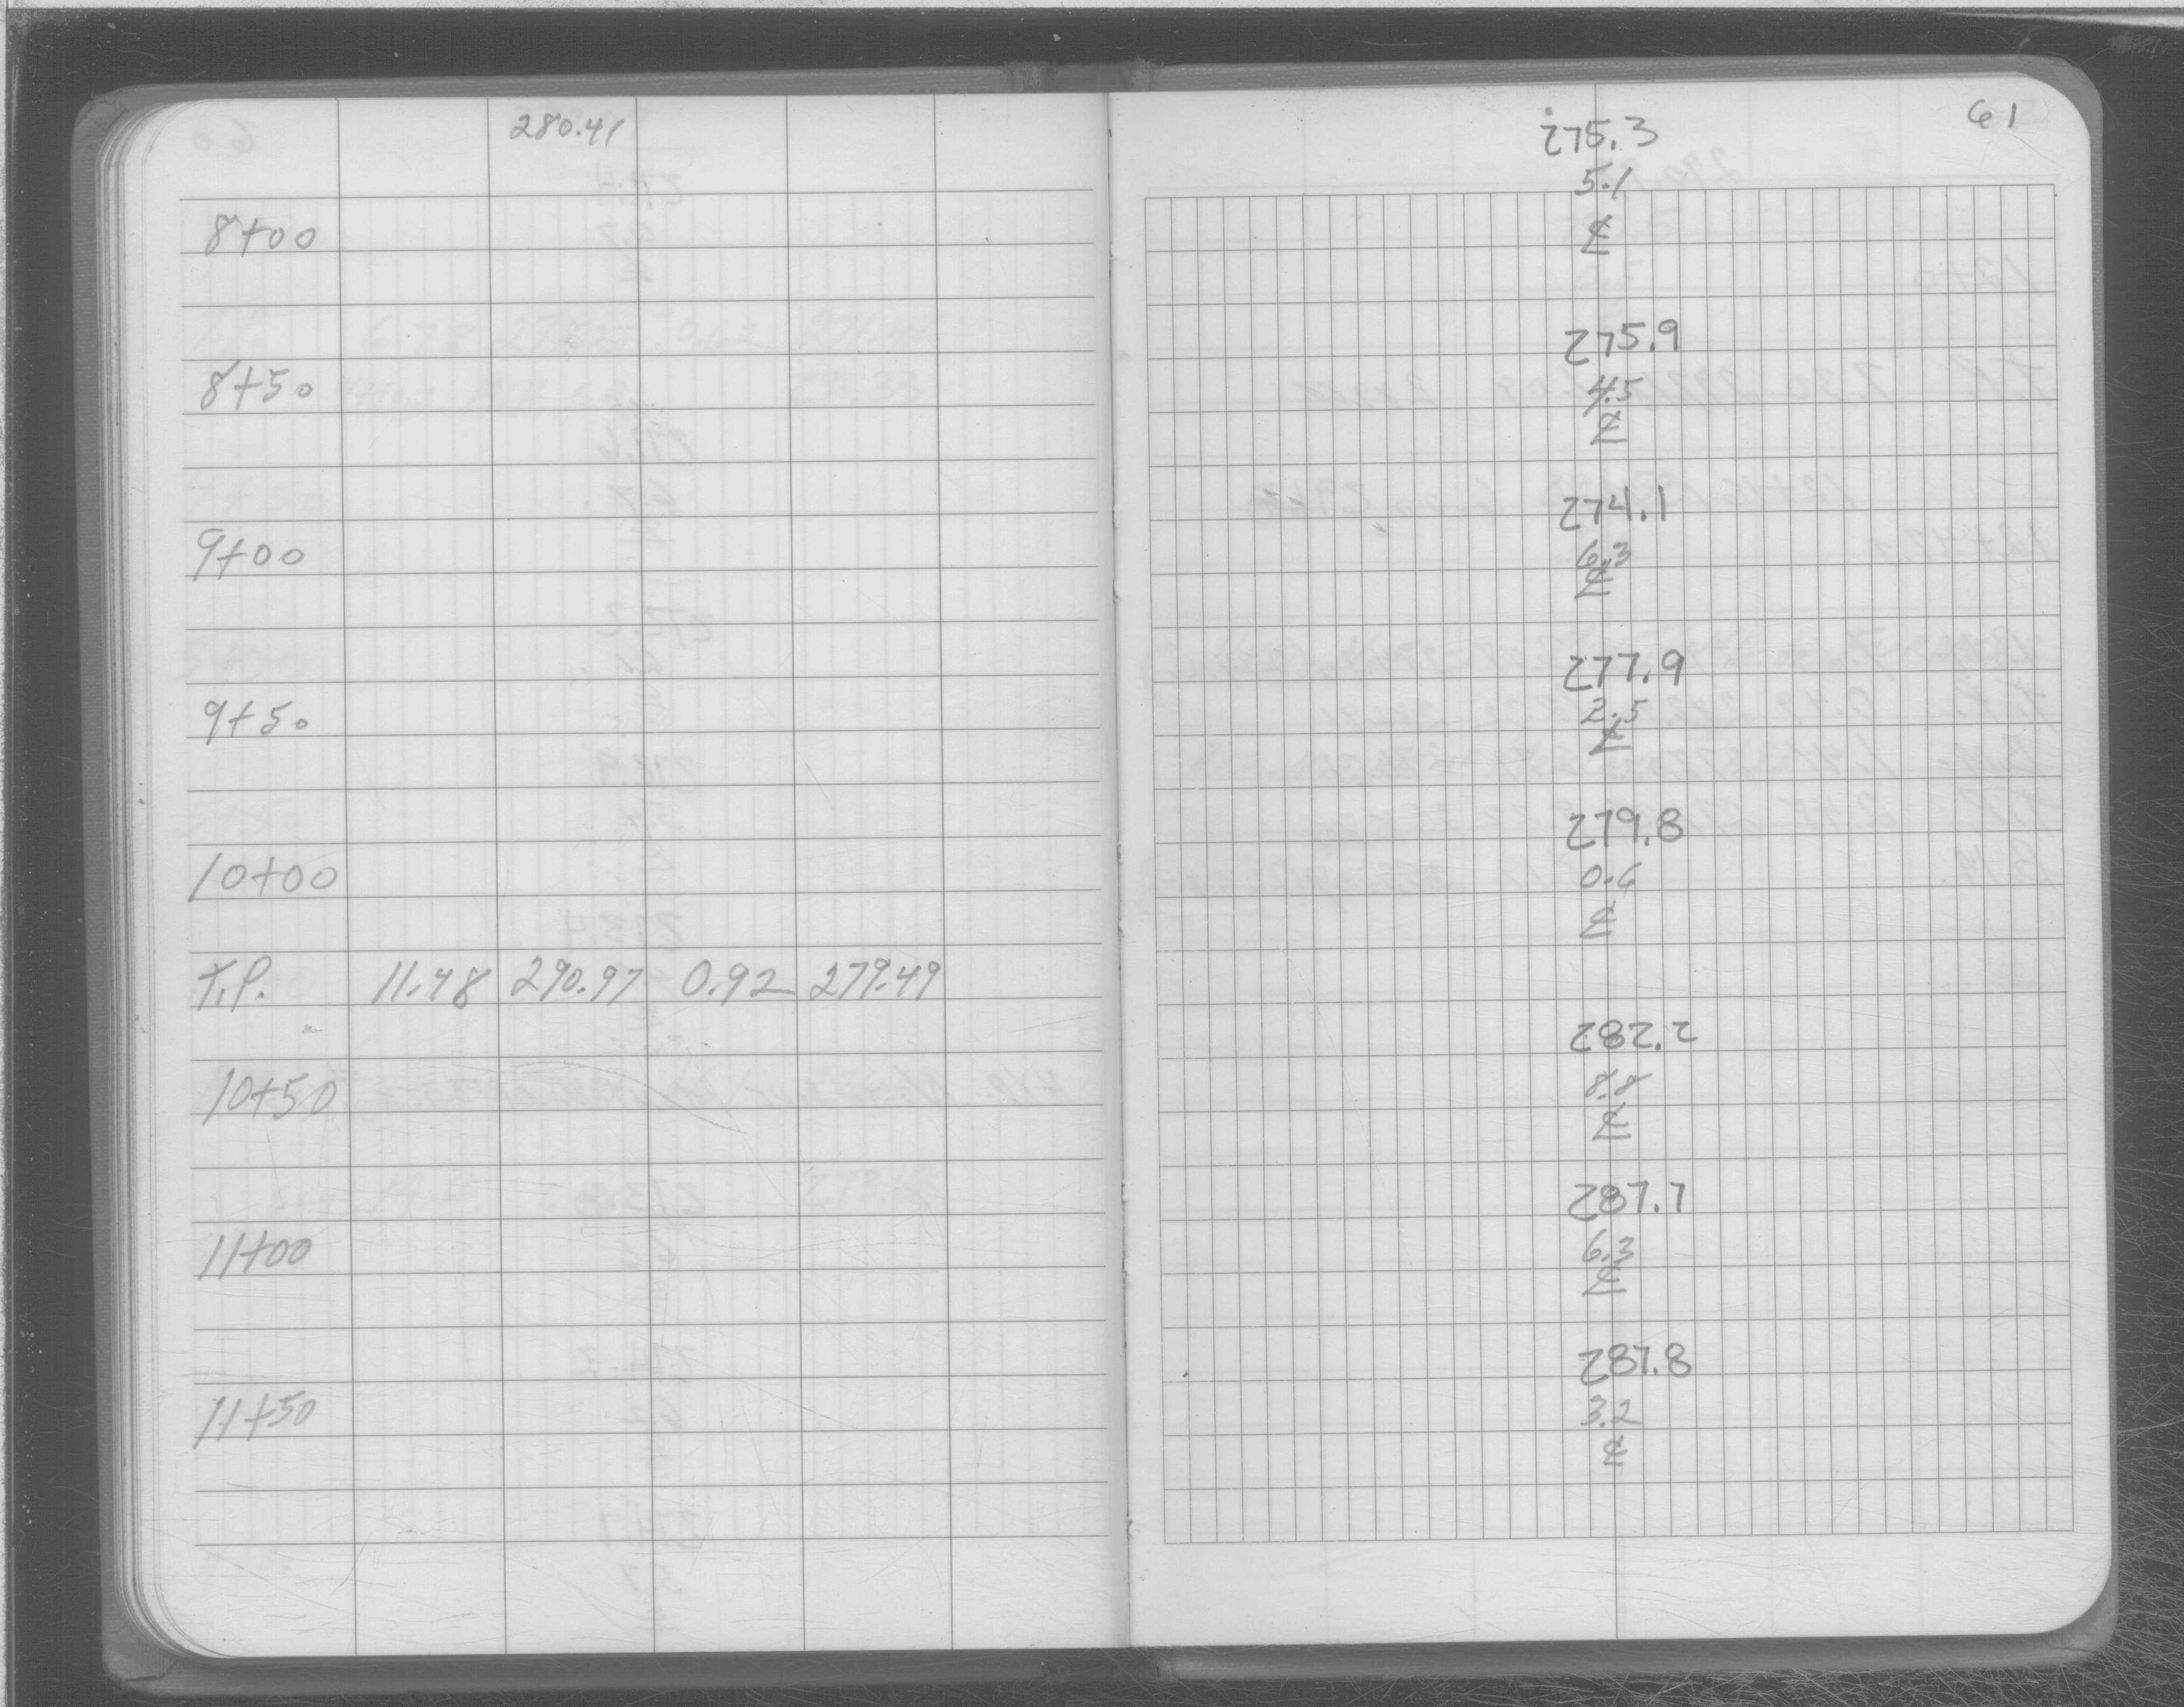 280.41
8+00
8+50
9+00
9+50
10+00
T.P. 11.48 290.97 0.92 279.49
10+50
11+00
11+50
61
275.3
5.1
℄
275.9
4.5
℄
274.1
6.3
℄
277.9
2.5
℄
279.8
0.6
℄
282.2
8.8
℄
287.7
6.3
℄
287.8
3.2
℄